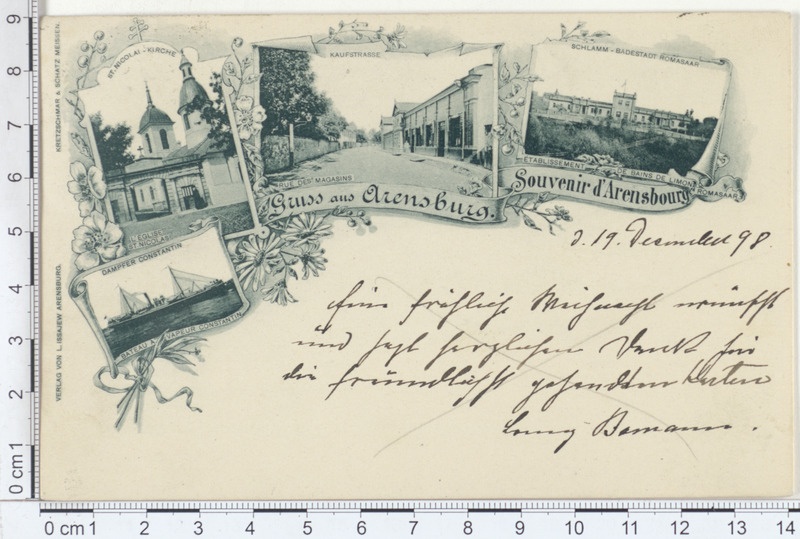 ST. NICOLAI-KIRCHE
L'EGLISE
ST. NICOLAS
KAUFSTRASSE
RUE DES MAGASINS
Gruss aus Arensburg.
SCHLAMM-BADESTADT ROMASAAR
ETABLISSEMENT DE BAINS DE LIMON ROMASAAR
Souvenir d'Arensbourg
DAMPFER CONSTANTIN
BATEAU A VAPEUR CONSTANTIN
KRETZSCHMAR & SCHATZ MEISSEN.
VERLAG VON L. ISSAJEW ARENSBURG.
d. 19. Dezember 98.
Eine fröhliche Weihnacht wünscht
und sagt herzlichen Dank für
die freundlichst gesandten Karten
9
8
7
6
5
4
3
2
1
0 cm
0 cm 1 2 3 4 5 6 7 8 9 10 11 12 13 14